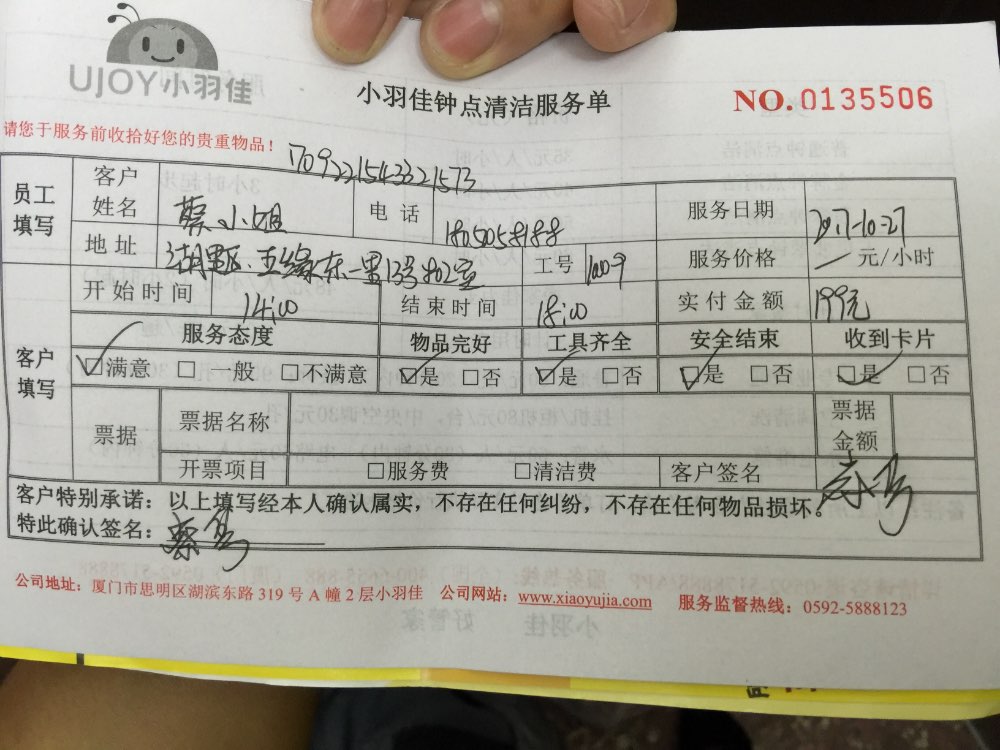 UJOY小羽佳
小羽佳钟点清洁服务单
NO.0135506
请您于服务前收拾好您的贵重物品！
17092215433221573
员工填写 客户姓名 蔡小姐 电话 18050058188 服务日期 2017-10-27
地址 湖里区.五缘东一里13号802室 工号 10009 服务价格 — 元/小时
开始时间 14:00 结束时间 18:00 实付金额 199元
客户填写 服务态度 物品完好 工具齐全 安全结束 收到卡片
☑满意 □一般 □不满意 ☑是 □否 ☑是 □否 ☑是 □否 ☑是 □否
票据 票据名称 票据金额
开票项目 □服务费 □清洁费 客户签名
客户特别承诺：以上填写经本人确认属实，不存在任何纠纷，不存在任何物品损坏。
特此确认签名：
公司地址：厦门市思明区湖滨东路 319 号 A 幢 2 层小羽佳 公司网站：www.xiaoyujia.com 服务监督热线：0592-5888123